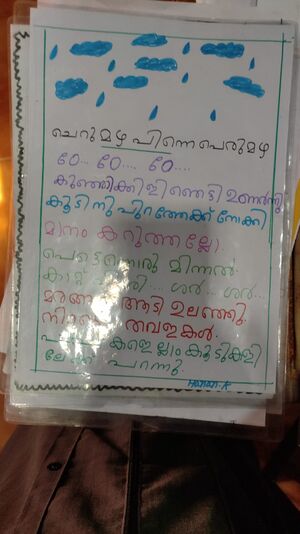 ചെറുമഴ പിന്നെ പെരുമഴ
ഠേ... ഠേ.... ഠേ....
കുഞ്ഞിക്കിളി ഞെട്ടി ഉണർന്നു
കൂടിനു പുറത്തേക്ക് നോക്കി
മാനം കറുത്തല്ലോ
പെട്ടെന്നൊരു മിന്നൽ
കാറ്റ് ശർ... ശർ...
ആടി ഉലഞ്ഞു
തവളകൾ.
കൂടുകളി
പറന്നു.
Hanan.K